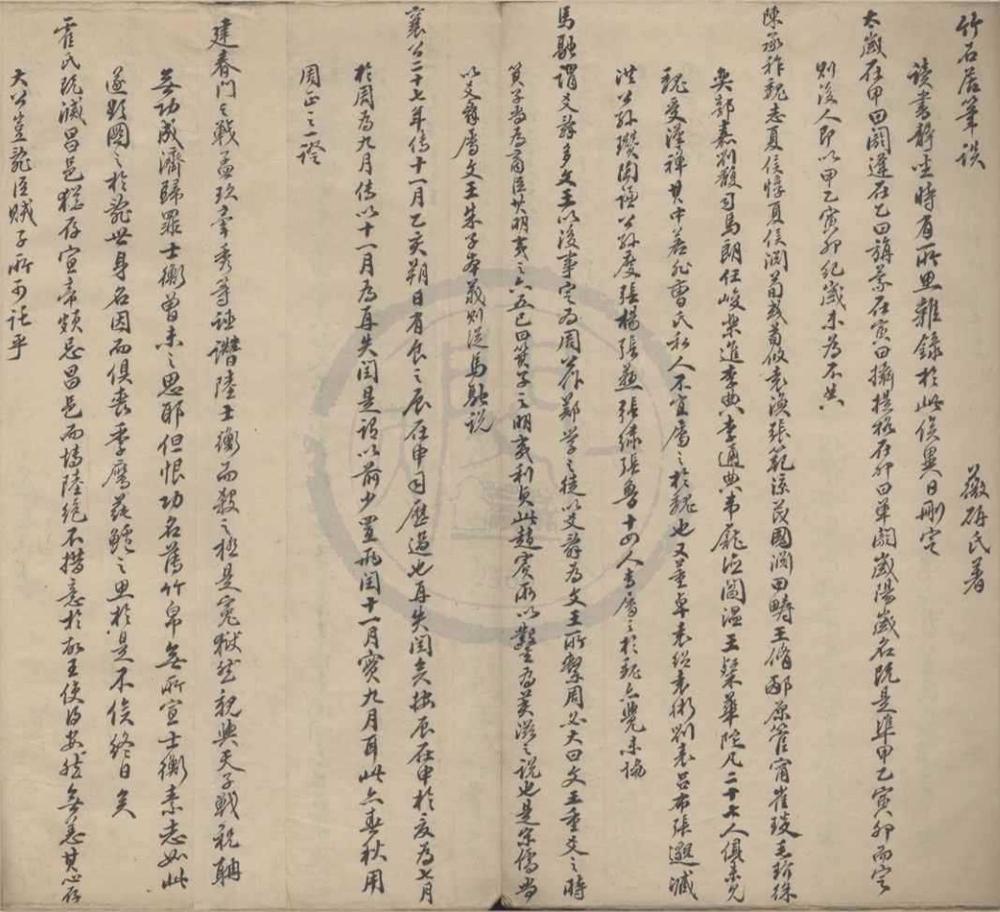 竹石居筆談　薇研氏著
讀書靜坐時有所思雜錄於此俟異日刪定
太歲在甲曰閼逢在乙曰旃蒙在寅曰攝提格在卯曰單閼歲陽歲名既是準甲乙寅卯而定
則後人即以甲乙寅卯紀歲未為不典
陳承祚魏志夏侯惇夏侯淵荀彧荀攸袁渙張範涼茂國淵田疇王脩邴原管甯崔琰毛玠徐
奕郭嘉劉馥司馬朗任峻樂進李典李通典韋龐悳閻溫王粲華陀凡二十七人俱未見
魏受漢禪其中若非曹氏私人不宜屬之於魏也又董卓袁紹袁術劉表呂布張邈臧
洪公孫瓚陶謙公孫度張楊張燕張繡張魯十四人書屬之於魏亦覺未協
馬融謂爻辭多文王以後事定為周公作鄭學之徒以爻辭為文王所繫周必大曰文王重爻之時
箕子尚為商臣其明夷之六五已曰箕子之明夷利貞此趙賓所以鑿為荄滋之說也是宋儒尚
以爻辭屬文王朱子本義則從馬融說
襄公二十七年傳十一月乙亥朔日有食之辰在申司歷過也再失閏矣按辰在申於夏為七月
於周為九月傳以十一月為再失閏是謂以前少置兩閏十一月實九月耳此亦春秋用
周正之一證
建春門之戰孟玖牽秀等誣譖陸士衡而殺之極是冤獄然親與天子戰親
無功成濟歸罪士衡曾未之思耶但恨功名舊竹帛無所宣士衡素志如此
遂蹈圖之於亂世身名因而俱喪季鷹蒓鱸之思於是不俟終日矣
霍氏既滅昌邑猶存宣帝頗忌昌邑而博陸絕不措意於故王使得安然無恙其心存
大公豈亂臣賊子所可託乎